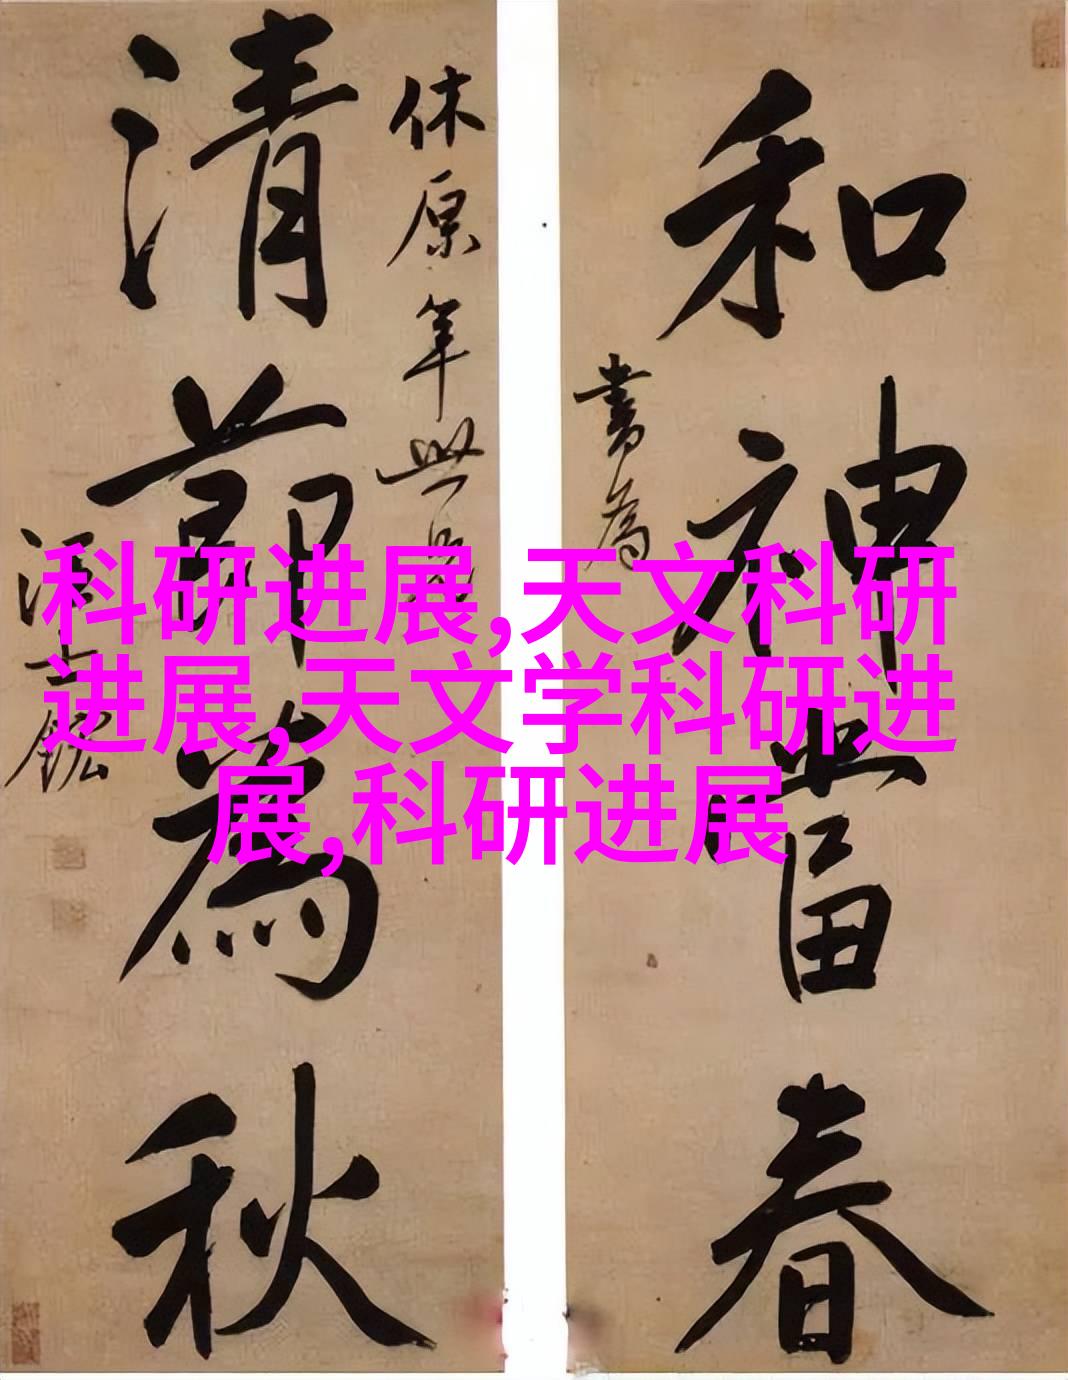 和神當春
書為
休原年世兄
清節為秋
汪士鋐
科研进展,天文科研
进展,天文学科研进
展,科研进展